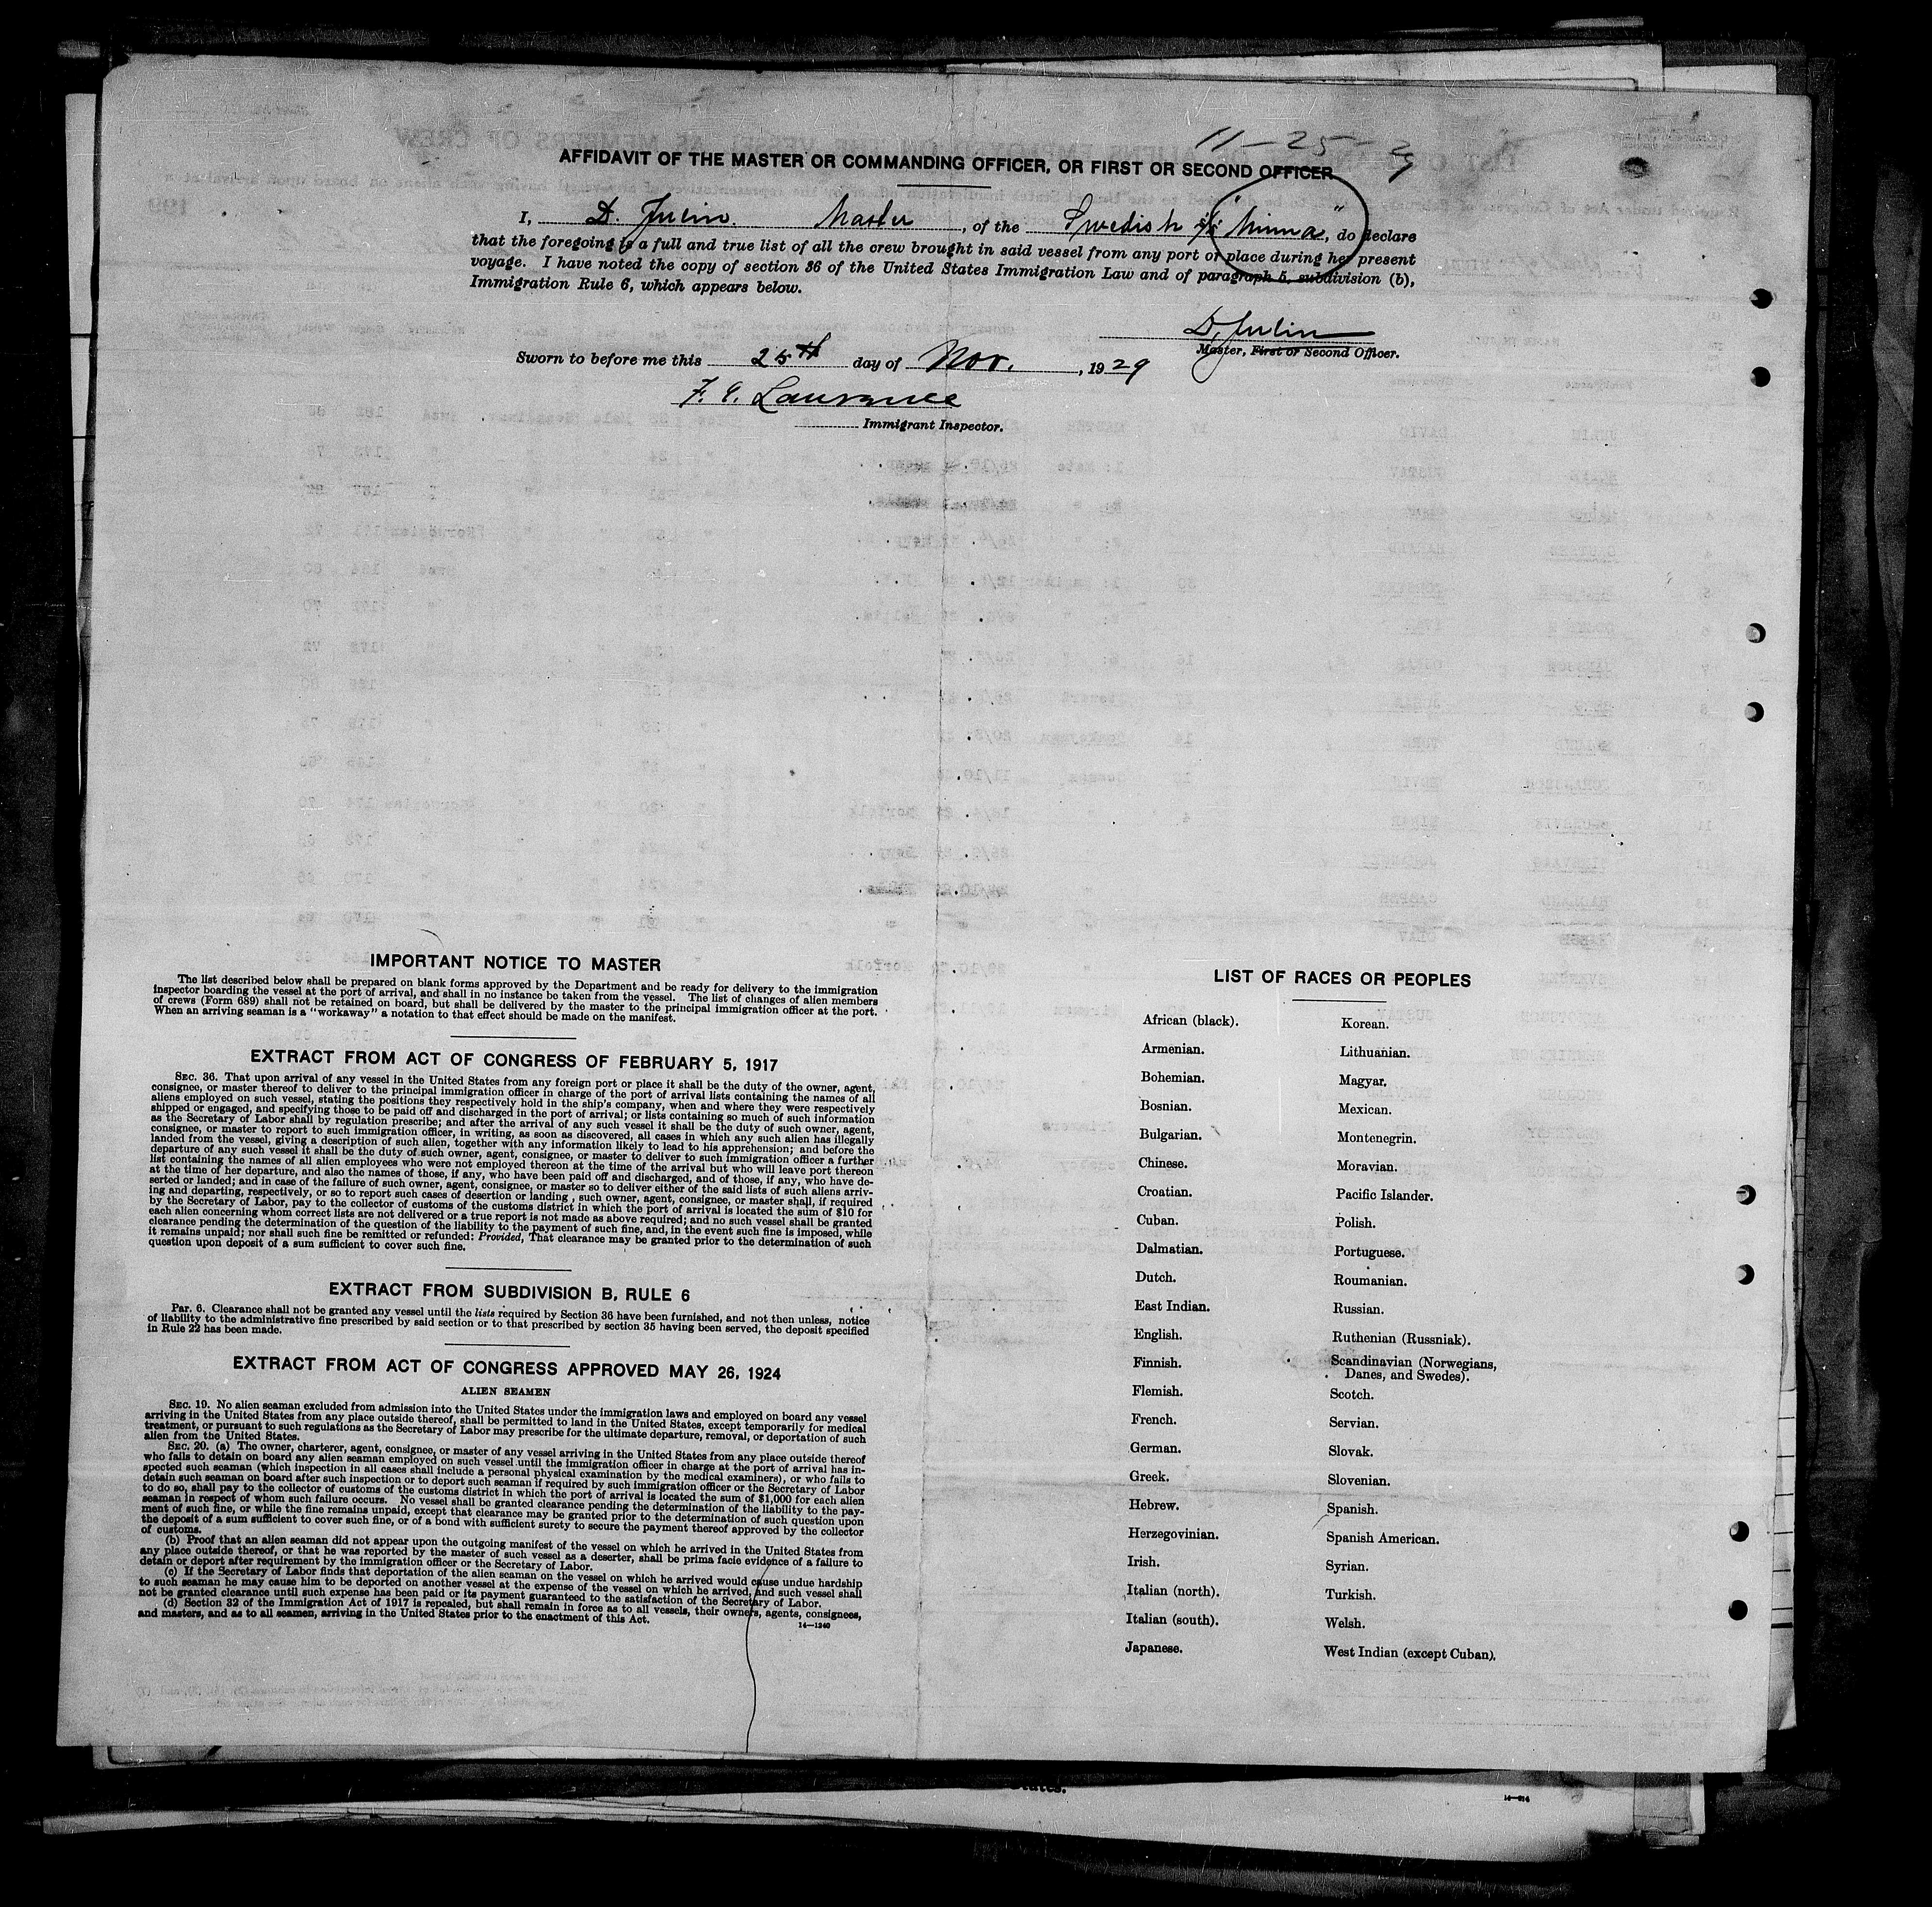 11-25-29
AFFIDAVIT OF THE MASTER OR COMMANDING OFFICER, OR FIRST OR SECOND OFFICER
I, D. Julin. Master, of the Swedish s/s "Minna", do declare
that the foregoing is a full and true list of all the crew brought in said vessel from any port or place during her present
voyage. I have noted the copy of section 36 of the United States Immigration Law and of paragraph 5, subdivision (b),
Immigration Rule 6, which appears below.
D. Julin
Master, First or Second Officer.
Sworn to before me this 25th day of Nov., 1929
F. E. Lawrance
Immigrant Inspector.
IMPORTANT NOTICE TO MASTER
The list described below shall be prepared on blank forms approved by the Department and be ready for delivery to the immigration
inspector boarding the vessel at the port of arrival, and shall in no instance be taken from the vessel. The list of changes of alien members
of crews (Form 689) shall not be retained on board, but shall be delivered by the master to the principal immigration officer at the port.
When an arriving seaman is a "workaway" a notation to that effect should be made on the manifest.
EXTRACT FROM ACT OF CONGRESS OF FEBRUARY 5, 1917
SEC. 36. That upon arrival of any vessel in the United States from any foreign port or place it shall be the duty of the owner, agent,
consignee, or master thereof to deliver to the principal immigration officer in charge of the port of arrival lists containing the names of all
aliens employed on such vessel, stating the positions they respectively hold in the ship's company, when and where they were respectively
shipped or engaged, and specifying those to be paid off and discharged in the port of arrival; or lists containing so much of such information
as the Secretary of Labor shall by regulation prescribe; and after the arrival of any such vessel it shall be the duty of such owner, agent,
consignee, or master to report to such immigration officer, in writing, as soon as discovered, all cases in which any such alien has illegally
landed from the vessel, giving a description of such alien, together with any information likely to lead to his apprehension; and before the
departure of any such vessel it shall be the duty of such owner, agent, consignee, or master to deliver to such immigration officer a further
list containing the names of all alien employees who were not employed thereon at the time of the arrival but who will leave port thereon
at the time of her departure, and also the names of those, if any, who have been paid off and discharged, and of those, if any, who have de-
serted or landed; and in case of the failure of such owner, agent, consignee, or master so to deliver either of the said lists of such aliens arriv-
ing and departing, respectively, or so to report such cases of desertion or landing, such owner, agent, consignee, or master shall, if required
by the Secretary of Labor, pay to the collector of customs of the customs district in which the port of arrival is located the sum of $10 for
each alien concerning whom correct lists are not delivered or a true report is not made as above required; and no such vessel shall be granted
clearance pending the determination of the question of the liability to the payment of such fine, and, in the event such fine is imposed, while
it remains unpaid; nor shall such fine be remitted or refunded: Provided, That clearance may be granted prior to the determination of such
question upon deposit of a sum sufficient to cover such fine.
EXTRACT FROM SUBDIVISION B, RULE 6
Par. 6. Clearance shall not be granted any vessel until the lists required by Section 36 have been furnished, and not then unless, notice
of liability to the administrative fine prescribed by said section or to that prescribed by section 35 having been served, the deposit specified
in Rule 22 has been made.
EXTRACT FROM ACT OF CONGRESS APPROVED MAY 26, 1924
ALIEN SEAMEN
SEC. 19. No alien seaman excluded from admission into the United States under the immigration laws and employed on board any vessel
arriving in the United States from any place outside thereof, shall be permitted to land in the United States, except temporarily for medical
treatment, or pursuant to such regulations as the Secretary of Labor may prescribe for the ultimate departure, removal, or deportation of such
alien from the United States.
SEC. 20. (a) The owner, charterer, agent, consignee, or master of any vessel arriving in the United States from any place outside thereof
who fails to detain on board any alien seaman employed on such vessel until the immigration officer in charge at the port of arrival has in-
spected such seaman (which inspection in all cases shall include a personal physical examination by the medical examiners), or who fails to
detain such seaman on board after such inspection or to deport such seaman if required by such immigration officer or the Secretary of Labor
to do so, shall pay to the collector of customs of the customs district in which the port of arrival is located the sum of $1,000 for each alien
seaman in respect of whom such failure occurs. No vessel shall be granted clearance pending the determination of the liability to the pay-
ment of such fine, or while the fine remains unpaid, except that clearance may be granted prior to the determination of such question upon
the deposit of a sum sufficient to cover such fine, or of a bond with sufficient surety to secure the payment thereof approved by the collector
of customs.
(b) Proof that an alien seaman did not appear upon the outgoing manifest of the vessel on which he arrived in the United States from
any place outside thereof, or that he was reported by the master of such vessel as a deserter, shall be prima facie evidence of a failure to
detain or deport after requirement by the immigration officer or the Secretary of Labor.
(c) If the Secretary of Labor finds that deportation of the alien seaman on the vessel on which he arrived would cause undue hardship
to such seaman he may cause him to be deported on another vessel at the expense of the vessel on which he arrived, and such vessel shall
not be granted clearance until such expense has been paid or its payment guaranteed to the satisfaction of the Secretary of Labor.
(d) Section 32 of the Immigration Act of 1917 is repealed, but shall remain in force as to all vessels, their owners, agents, consignees,
and masters, and as to all seamen, arriving in the United States prior to the enactment of this Act.
14—1240
LIST OF RACES OR PEOPLES
African (black).
Armenian.
Bohemian.
Bosnian.
Bulgarian.
Chinese.
Croatian.
Cuban.
Dalmatian.
Dutch.
East Indian.
English.
Finnish.
Flemish.
French.
German.
Greek.
Hebrew.
Herzegovinian.
Irish.
Italian (north).
Italian (south).
Japanese.
Korean.
Lithuanian.
Magyar.
Mexican.
Montenegrin.
Moravian.
Pacific Islander.
Polish.
Portuguese.
Roumanian.
Russian.
Ruthenian (Russniak).
Scandinavian (Norwegians,
Danes, and Swedes).
Scotch.
Servian.
Slovak.
Slovenian.
Spanish.
Spanish American.
Syrian.
Turkish.
Welsh.
West Indian (except Cuban).